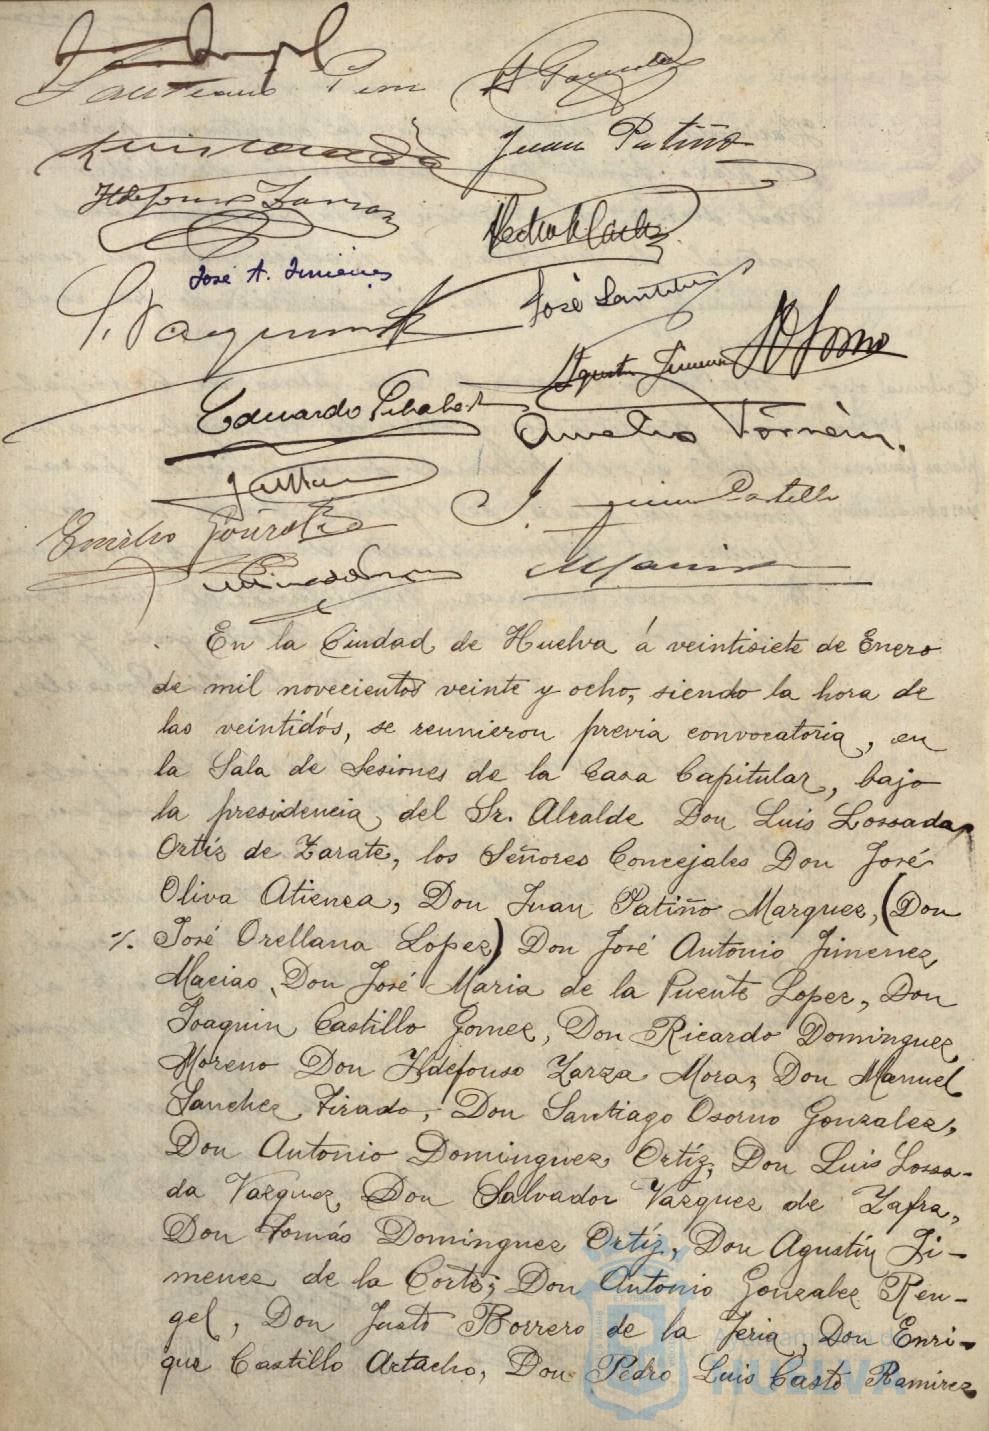 Juan Patiño
Ildefonso Zarza
José A. Jimenez
José
Eduardo
Agustin Jimenez
Aurelio
Castillo
Emilio
En la Ciudad de Huelva á veintisiete de Enero
de mil novecientos veinte y ocho, siendo la hora de
las veintidós, se reunieron previa convocatoria, en
la Sala de Sesiones de la Casa Capitular, bajo
la presidencia, del Sr. Alcalde Don Luis Lossada,
Ortíz de Zarate, los Señores Concejales Don José
Oliva Atienza, Don Juan Patiño Marquez, (Don
%. José Orellana Lopez) Don José Antonio Jimenez,
Macias, Don José Maria de la Puente Lopez, Don
Joaquin Castillo Gomez, Don Ricardo Dominguez,
Moreno Don Ildefonso Zarza Mora, Don Manuel
Sanchez Tirado, Don Santiago Osorno Gonzalez,
Don Antonio Dominguez Ortíz, Don Luis Lossa-
da Vazquez, Don Salvador Vazquez de Zafra,
Don Tomás Dominguez Ortíz, Don Agustín Ji-
menez de la Corte, Don Antonio Gonzalez Ren-
gel, Don Justo Borrero de la Feria, Don Enri-
que Castillo Artacho, Don Pedro Luis Casto Ramirez
HUELVA